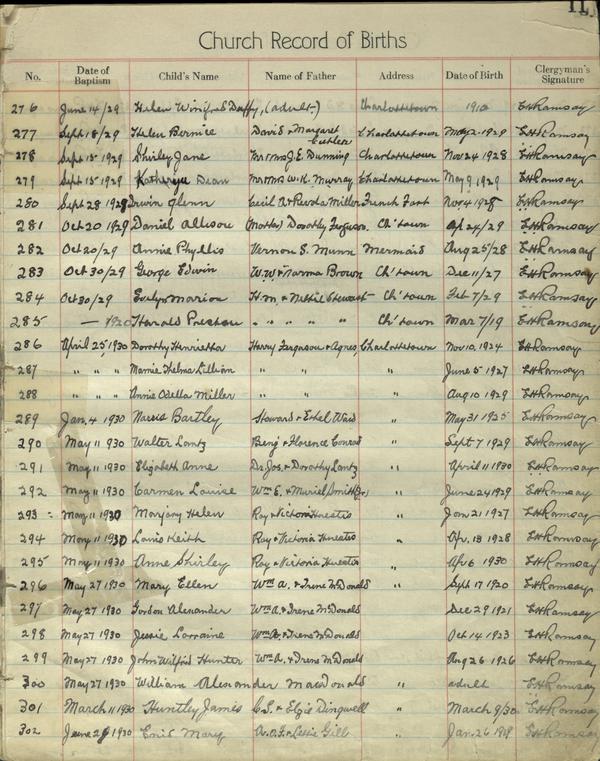 11
Church Record of Births
No. Date of Baptism Child's Name Name of Father Address Date of Birth Clergyman's Signature
276 June 14/29 Helen Winifred Duffy, (adult) Charlottetown 1910 E.H. Ramsay
277 Sept 18/29 Helen Bernice David & Margaret Charlottetown May 2-1929 E.H. Ramsay
278 Sept 15 1929 Shirley Jane Mr & Mrs J.E. Dunning Charlottetown Nov 24 1928 E.H. Ramsay
279 Sept 15 1929 Katheryn Dean Mr & Mrs W.K. Murray Charlottetown May 9 1929 E.H. Ramsay
280 Sept 28 1929 Irwin Glenn Cecil & Miller French Fort Nov 4 1928 E.H. Ramsay
281 Oct 20 1929 Daniel Allison (Mother) Dorothy Ferguson Ch'town Ap 24/29 E.H. Ramsay
282 Oct 20/29 Annie Phyllis Vernon S. Munn Mermaid Aug 25/28 E.H. Ramsay
283 Oct 30/29 George Edwin W.W & Norma Brown Ch'town Dec 11/27 E.H. Ramsay
284 Oct 30/29 Evelyn Marion H.M. & Stewart Ch'town Feb 7/29 E.H. Ramsay
285 — 1920 Harold Preston " " " " " Ch'town Mar 7/19 E.H. Ramsay
286 April 25, 1930 Dorothy Henrietta Harry Ferguson & Agnes, Charlottetown Nov 10, 1924 E.H. Ramsay
287 " " " Mamie Thelma Lillian " " " June 5 1927 E.H. Ramsay
288 " " " Annie Odella Miller " " " Aug 10 1929 E.H. Ramsay
289 Jan. 4 1930 Bartley Howard & Ethel Ward " May 31 1925 E.H. Ramsay
290 May 11 1930 Walter Lantz Benj & Florence Conrad " Sept 7 1929 E.H. Ramsay
291 May 11 1930 Elizabeth Anne Dr. Jos. & Dorothy Lantz " April 11 1930 E.H. Ramsay
292 May 11 1930 Carmen Louise Wm E. & Muriel Smith " June 24 1929 E.H. Ramsay
293 May 11 1930 Margary Helen Ray & Victoria " Jan 21 1927 E.H. Ramsay
294 May 11 1930 Louis Keith Ray & Victoria " Apr. 13 1928 E.H. Ramsay
295 May 11 1930 Anne Shirley Ray & Victoria " Apr 6 1930 E.H. Ramsay
296 May 27 1930 Mary Ellen Wm A. & Irene McDonald " Sept 17 1920 E.H. Ramsay
297 May 27 1930 Gordon Alexander Wm A. & Irene McDonald Dec 29 1921 E.H. Ramsay
298 May 27 1930 Jessie Lorraine Wm A. & Irene McDonald Oct 14 1923 E.H. Ramsay
299 May 27 1930 John Wilfrid Hunter Wm A. & Irene McDonald Aug 26 1926 E.H. Ramsay
300 May 27 1930 William Alexander MacDonald " adult E.H. Ramsay
301 March 11 1930 Huntley James C.S. & Elsie Dingwell " March 9/30 E.H. Ramsay
302 June 29 1930 Enid Mary & Leslie Gill " Jan. 26 E.H. Ramsay